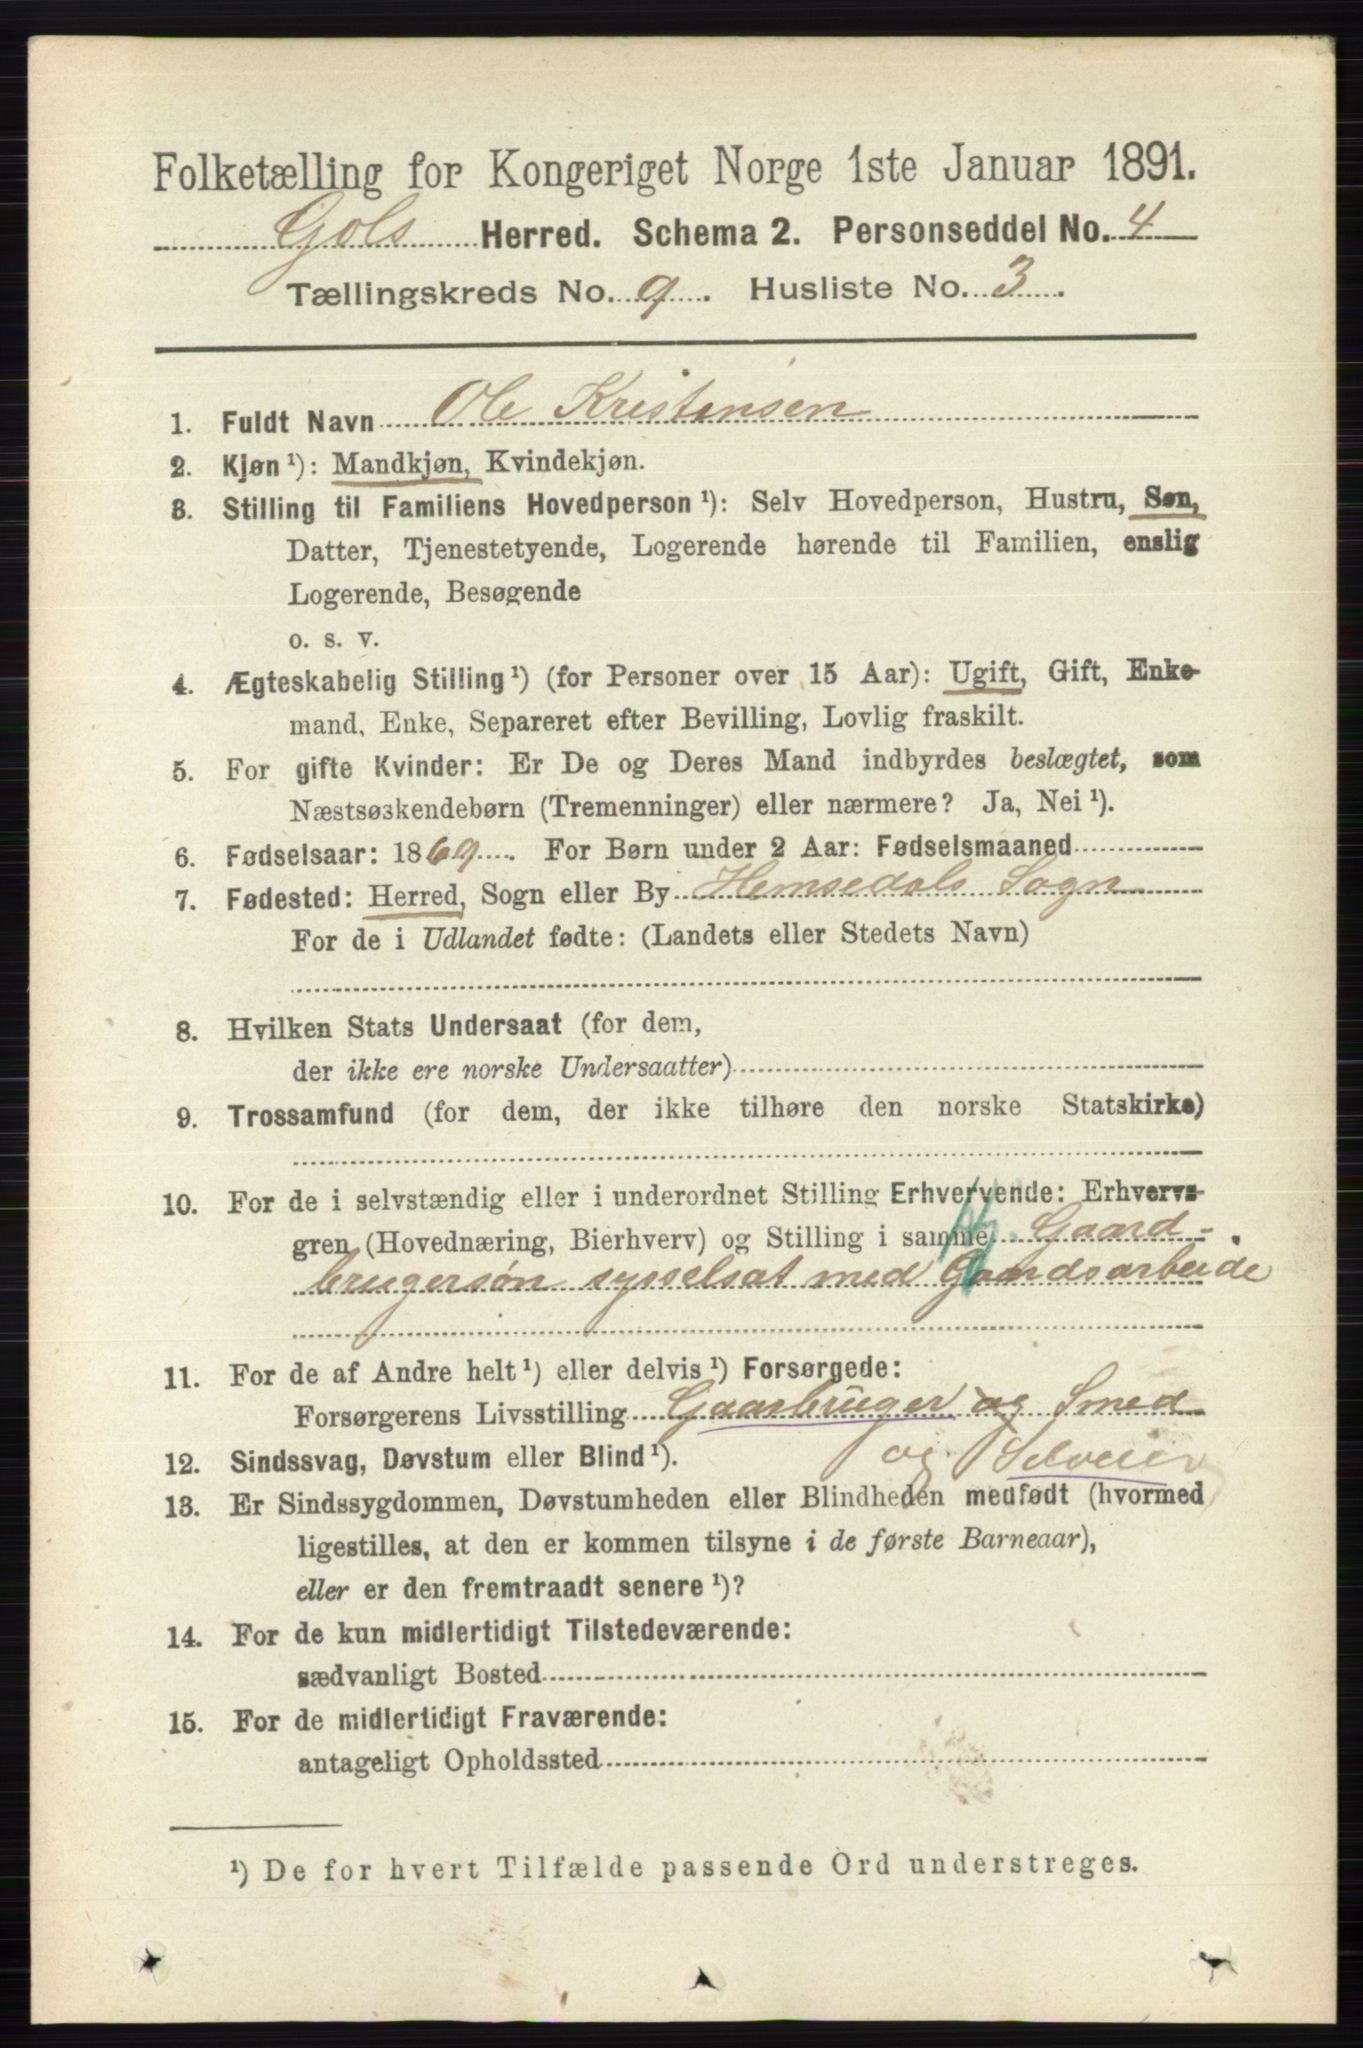 Folketælling for Kongeriget Norge 1ste Januar 1891.
Gols Herred. Schema 2. Personseddel No. 4
Tællingskreds No. 9. Husliste No. 3.
1. Fuldt Navn Ole Kristensen
2. Kjøn¹): Mandkjøn, Kvindekjøn.
3. Stilling til Familiens Hovedperson¹): Selv Hovedperson, Hustru, Søn,
Datter, Tjenestetyende, Logerende hørende til Familien, enslig
Logerende, Besøgende
o. s. v.
4. Ægteskabelig Stilling¹) (for Personer over 15 Aar): Ugift, Gift, Enke-
mand, Enke, Separeret efter Bevilling, Lovlig fraskilt.
5. For gifte Kvinder: Er De og Deres Mand indbyrdes beslægtet, som
Næstsøskendebørn (Tremenninger) eller nærmere? Ja, Nei¹).
6. Fødselsaar: 1869. For Børn under 2 Aar: Fødselsmaaned
7. Fødested: Herred, Sogn eller By Hemsedals Sogn
For de i Udlandet fødte: (Landets eller Stedets Navn)
8. Hvilken Stats Undersaat (for dem,
der ikke ere norske Undersaatter)
9. Trossamfund (for dem, der ikke tilhøre den norske Statskirke)
10. For de i selvstændig eller i underordnet Stilling Erhvervende: Erhvervs-
gren (Hovednæring, Bierhverv) og Stilling i samme Gaard-
brugersøn sysselsat med Gaardsarbeide
11. For de af Andre helt¹) eller delvis¹) Forsørgede:
Forsørgerens Livsstilling Gaarbruger og Smed
og Selveier
12. Sindssvag, Døvstum eller Blind¹).
13. Er Sindssygdommen, Døvstumheden eller Blindheden medfødt (hvormed
ligestilles, at den er kommen tilsyne i de første Barneaar),
eller er den fremtraadt senere¹)?
14. For de kun midlertidigt Tilstedeværende:
sædvanligt Bosted
15. For de midlertidigt Fraværende:
antageligt Opholdssted
¹) De for hvert Tilfælde passende Ord understreges.